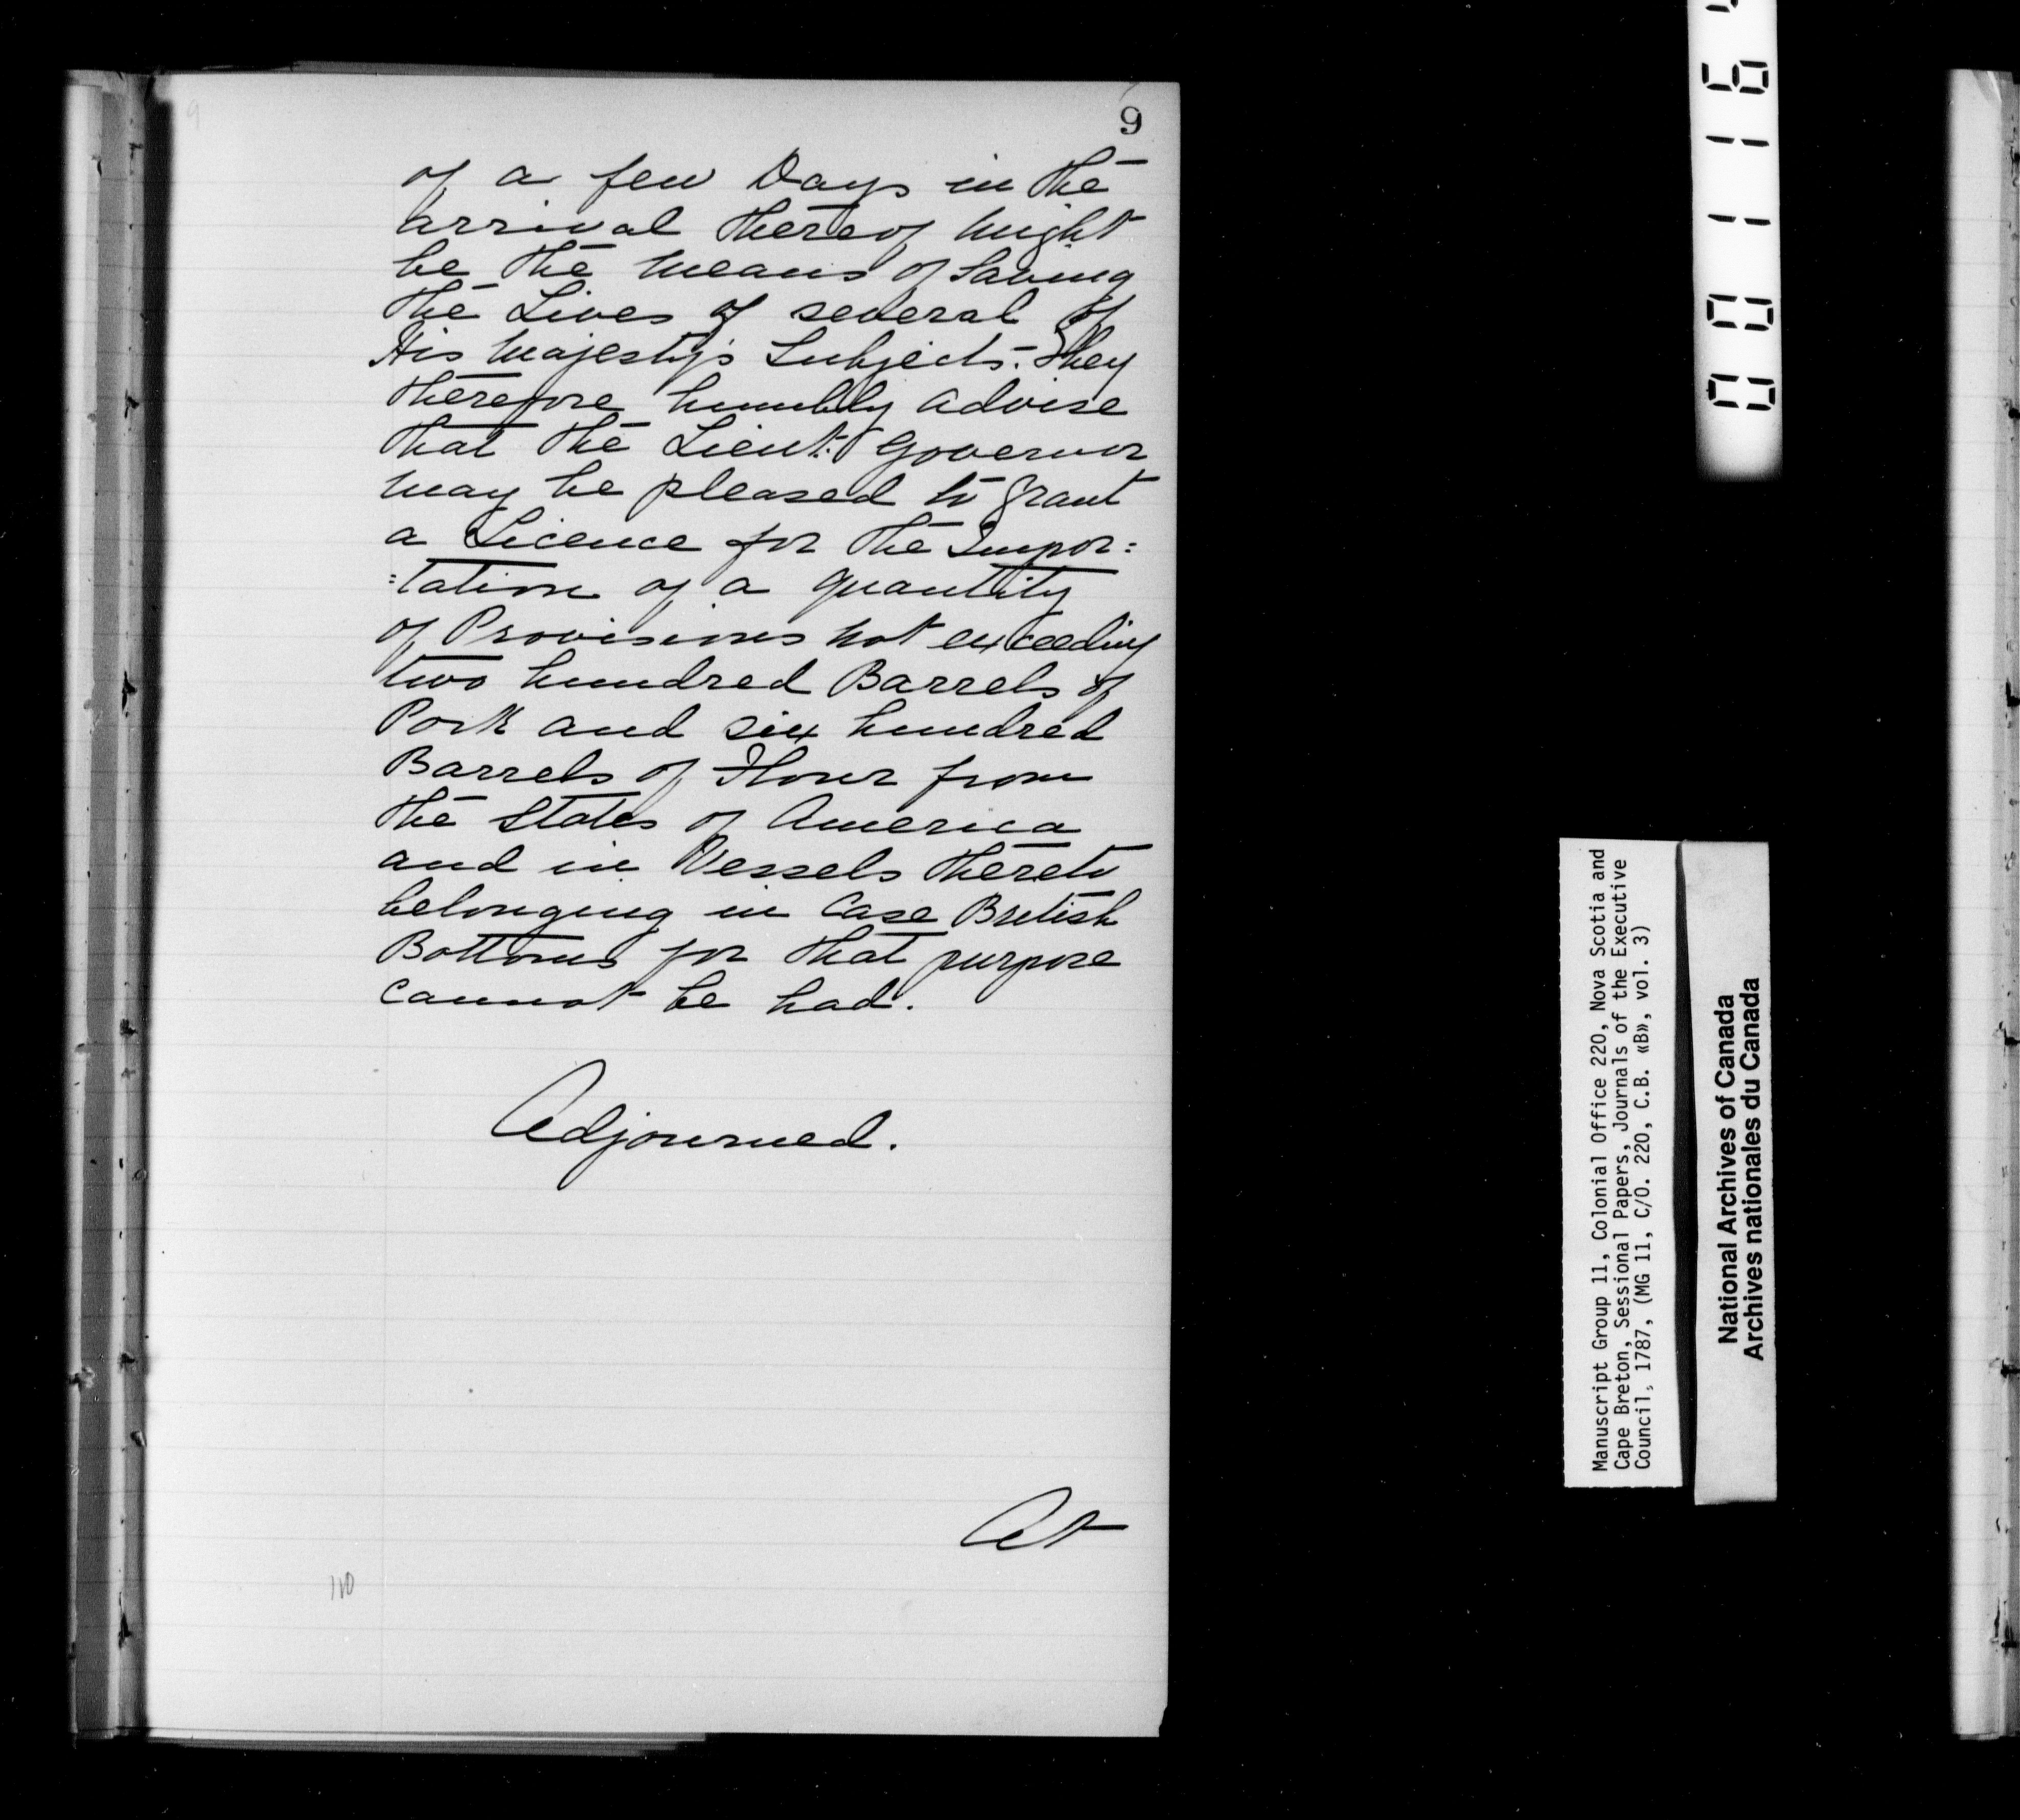 9
9
of a few Days in the
arrival thereof might
be the means of saving
the Lives of several of
His Majesty's Subjects. They
therefore humbly advise
that the Lieut: Governor
may be pleased to grant
a Licence for the Impor:
:tation of a quantity
of Provisions not exceeding
two hundred Barrels of
Pork and six hundred
Barrels of Flour from
the States of America
and in Vessels thereto
belonging in Case British
Bottoms for that purpose
cannot be had.
Adjourned.
At
110
001116
Manuscript Group 11, Colonial Office 220, Nova Scotia and
Cape Breton, Sessional Papers, Journals of the Executive
Council, 1787, (MG 11, C/O. 220, C.B. «B», vol. 3)
National Archives of Canada
Archives nationales du Canada